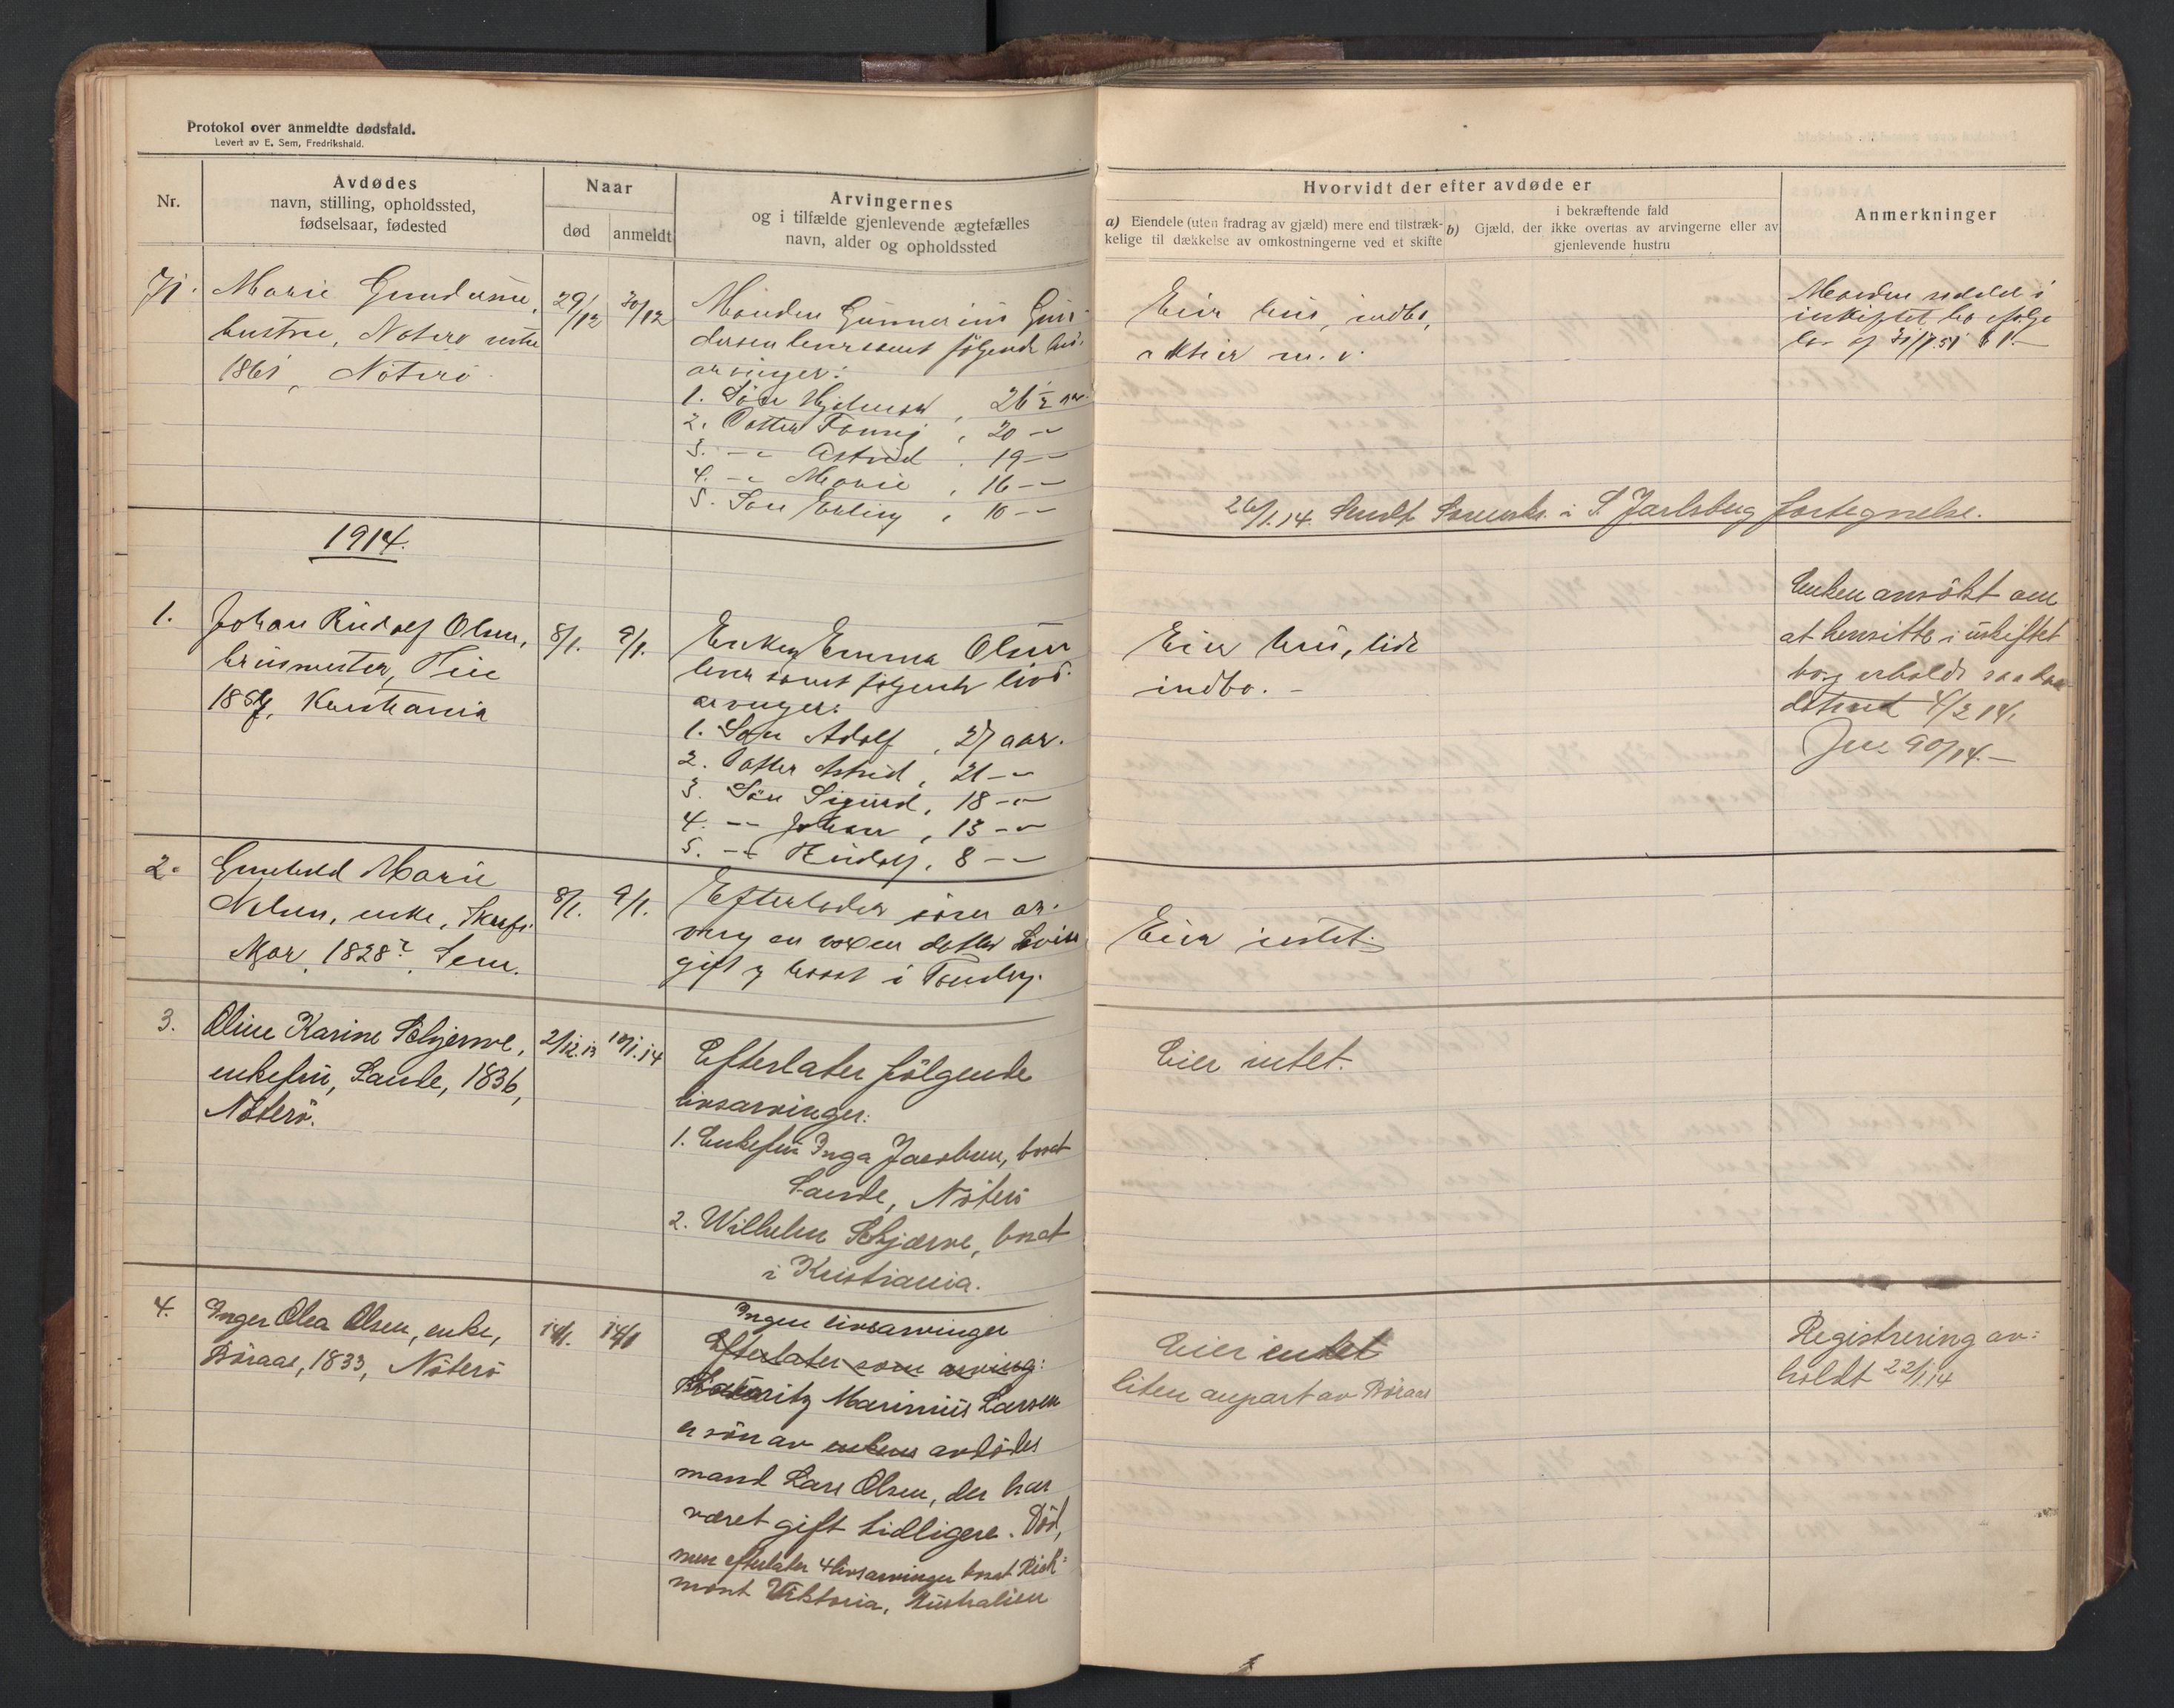 Protokol over anmeldte dødsfald.
Levert av E. Sem, Fredrikshald.
Nr.
Avdødes
navn, stilling, opholdssted,
fødselsaar, fødested
Naar
død
anmeldt
Arvingernes
og i tilfælde gjenlevende ægtefælles
navn, alder og opholdssted
Hvorvidt der efter avdøde er
a) Eiendele (uten fradrag av gjæld) mere end tilstræk-
kelige til dækkelse av omkostningerne ved et skifte
i bekræftende fald
b) Gjæld, der ikke overtas av arvingerne eller av
gjenlevende hustru
Anmerkninger
71.
Marie Gundersen,
hustru, Nøterø
1861, Nøterø
29/12
30/12
Manden Gunnerius Gun-
dersen lever samt følgende livs-
arvinger:
1. Søn Hjalmar, 26 1/2 aar.
2. Datter Fanny, 20 -"-
3. -"- Astrid, 19 -"-
4. -"- Marie, 16 -"-
5. Søn Erling, 10 -"-
Eier hus, indbo,
aktier m. v.
Manden
26/1.14. Sendt Sorenskr. i S. Jarlsberg fortegnelse.
1914.
1.
Johan Rudolf Olsen,
Kristiania
8/1.
9/1.
Enken Emma Olsen
lever samt følgende livs-
arvinger:
1. Søn Adolf, 27 aar.
2. Datter Astrid, 21 -"-
3. Søn Sigurd, 18 -"-
4. -"- Johan, 13 -"-
5. -"- Rudolf, 8 -"-
Eier hus, lidt
indbo. -
Enken ansøkt om
at hensitte i uskiftet
bo, erholdt saadan
4/2 14.
Jnr 90/14. -
2.
Gunhild Marie
Nilsen, enke,
1828?, Sem.
8/1.
9/1.
Efterlader som ar-
ving en voxen datter
gift og bosat i Tønsberg.
Eier intet.
3.
Oline Karine Schjerve,
enkefru, Sande, 1836,
Nøterø.
2/12.13
10/1.14
Efterlater følgende
livsarvinger:
1. Enkefru Inga Jacobsen, bosat
Sande, Nøterø
2. Wilhelm Schjærve, bosat
i Kristiania.
Eier intet.
4.
Inger Olea Olsen, enke,
Børaas, 1833, Nøterø
14/1.
14/1
Ingen livsarvinger
Efterlater som arving:
Marinius Larsen
er søn av enkens avdødes
mand Lars Olsen, der har
været gift tidligere. Død,
men efterlater 4 livsarvinger bosat Rich-
mont Viktoria, Australien
Eier intet
liten anpart av Børaas
Registrering av-
holdt 22/1.14